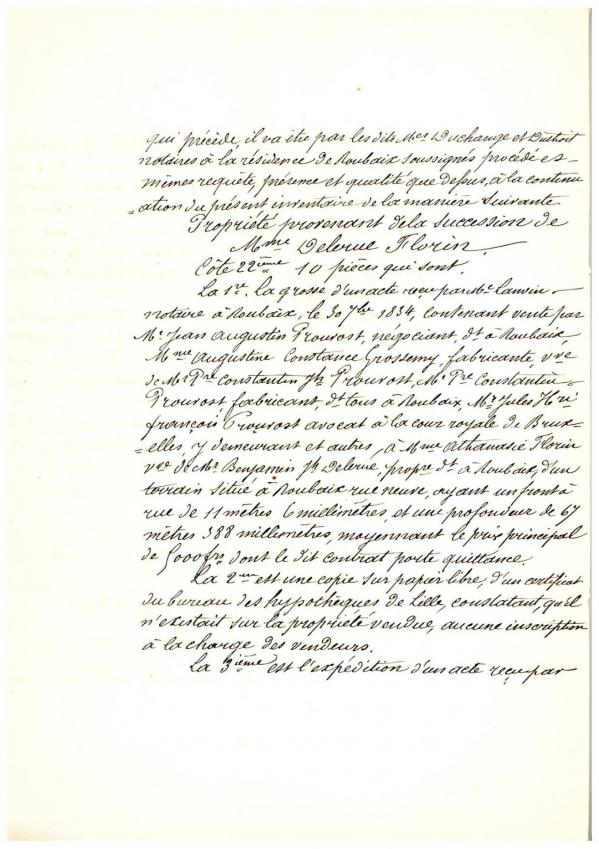 qui précède, il va être par les dits Mes Duchange et Duthoit
notaires à la résidence de Roubaix soussignés procédé es-
mêmes requête, présence et qualité que dessus, à la continu
=ation du présent inventaire de la manière suivante
Propriété provenant de la succession de
Mme Delerue Florin.
Côte 22ième 10 pièces qui sont.
La 1re. la grosse d'un acte reçu par Me Lauvin -
notaire à Roubaix, le 30 7bre 1834, contenant vente par
Mr. Jean Augustin Prouvost, négociant, dt à Roubaix,
Mme Augustine Constance Grossemy, fabricante, vve
de Mr Pre Constantin Jh Prouvost, Mr Pre Constantin =
Prouvost fabricant, dt tous à Roubaix, Mr Jules Hri
françois Prouvost avocat à la cour royale de Brux-
=elles, y demeurant et autres, à Mme Athanasie Florin
vve de Mr Benjamin Jh Delerue, propre dt à Roubaix, d'un
terrain situé à Roubaix rue neuve, ayant un front à
rue de 11 mètres 6 millimètres, et une profondeur de 67
mètres 388 millimètres, moyennant le prix principal
de 5000 frs dont le dit contrat porte quittance.
La 2me est une copie sur papier libre, d'un certificat
du bureau des hypothèques de Lille, constatant, qu'il
n'existait sur la propriété vendue, aucune inscription
à la charge des vendeurs.
La 3ième est l'expédition d'un acte reçu par